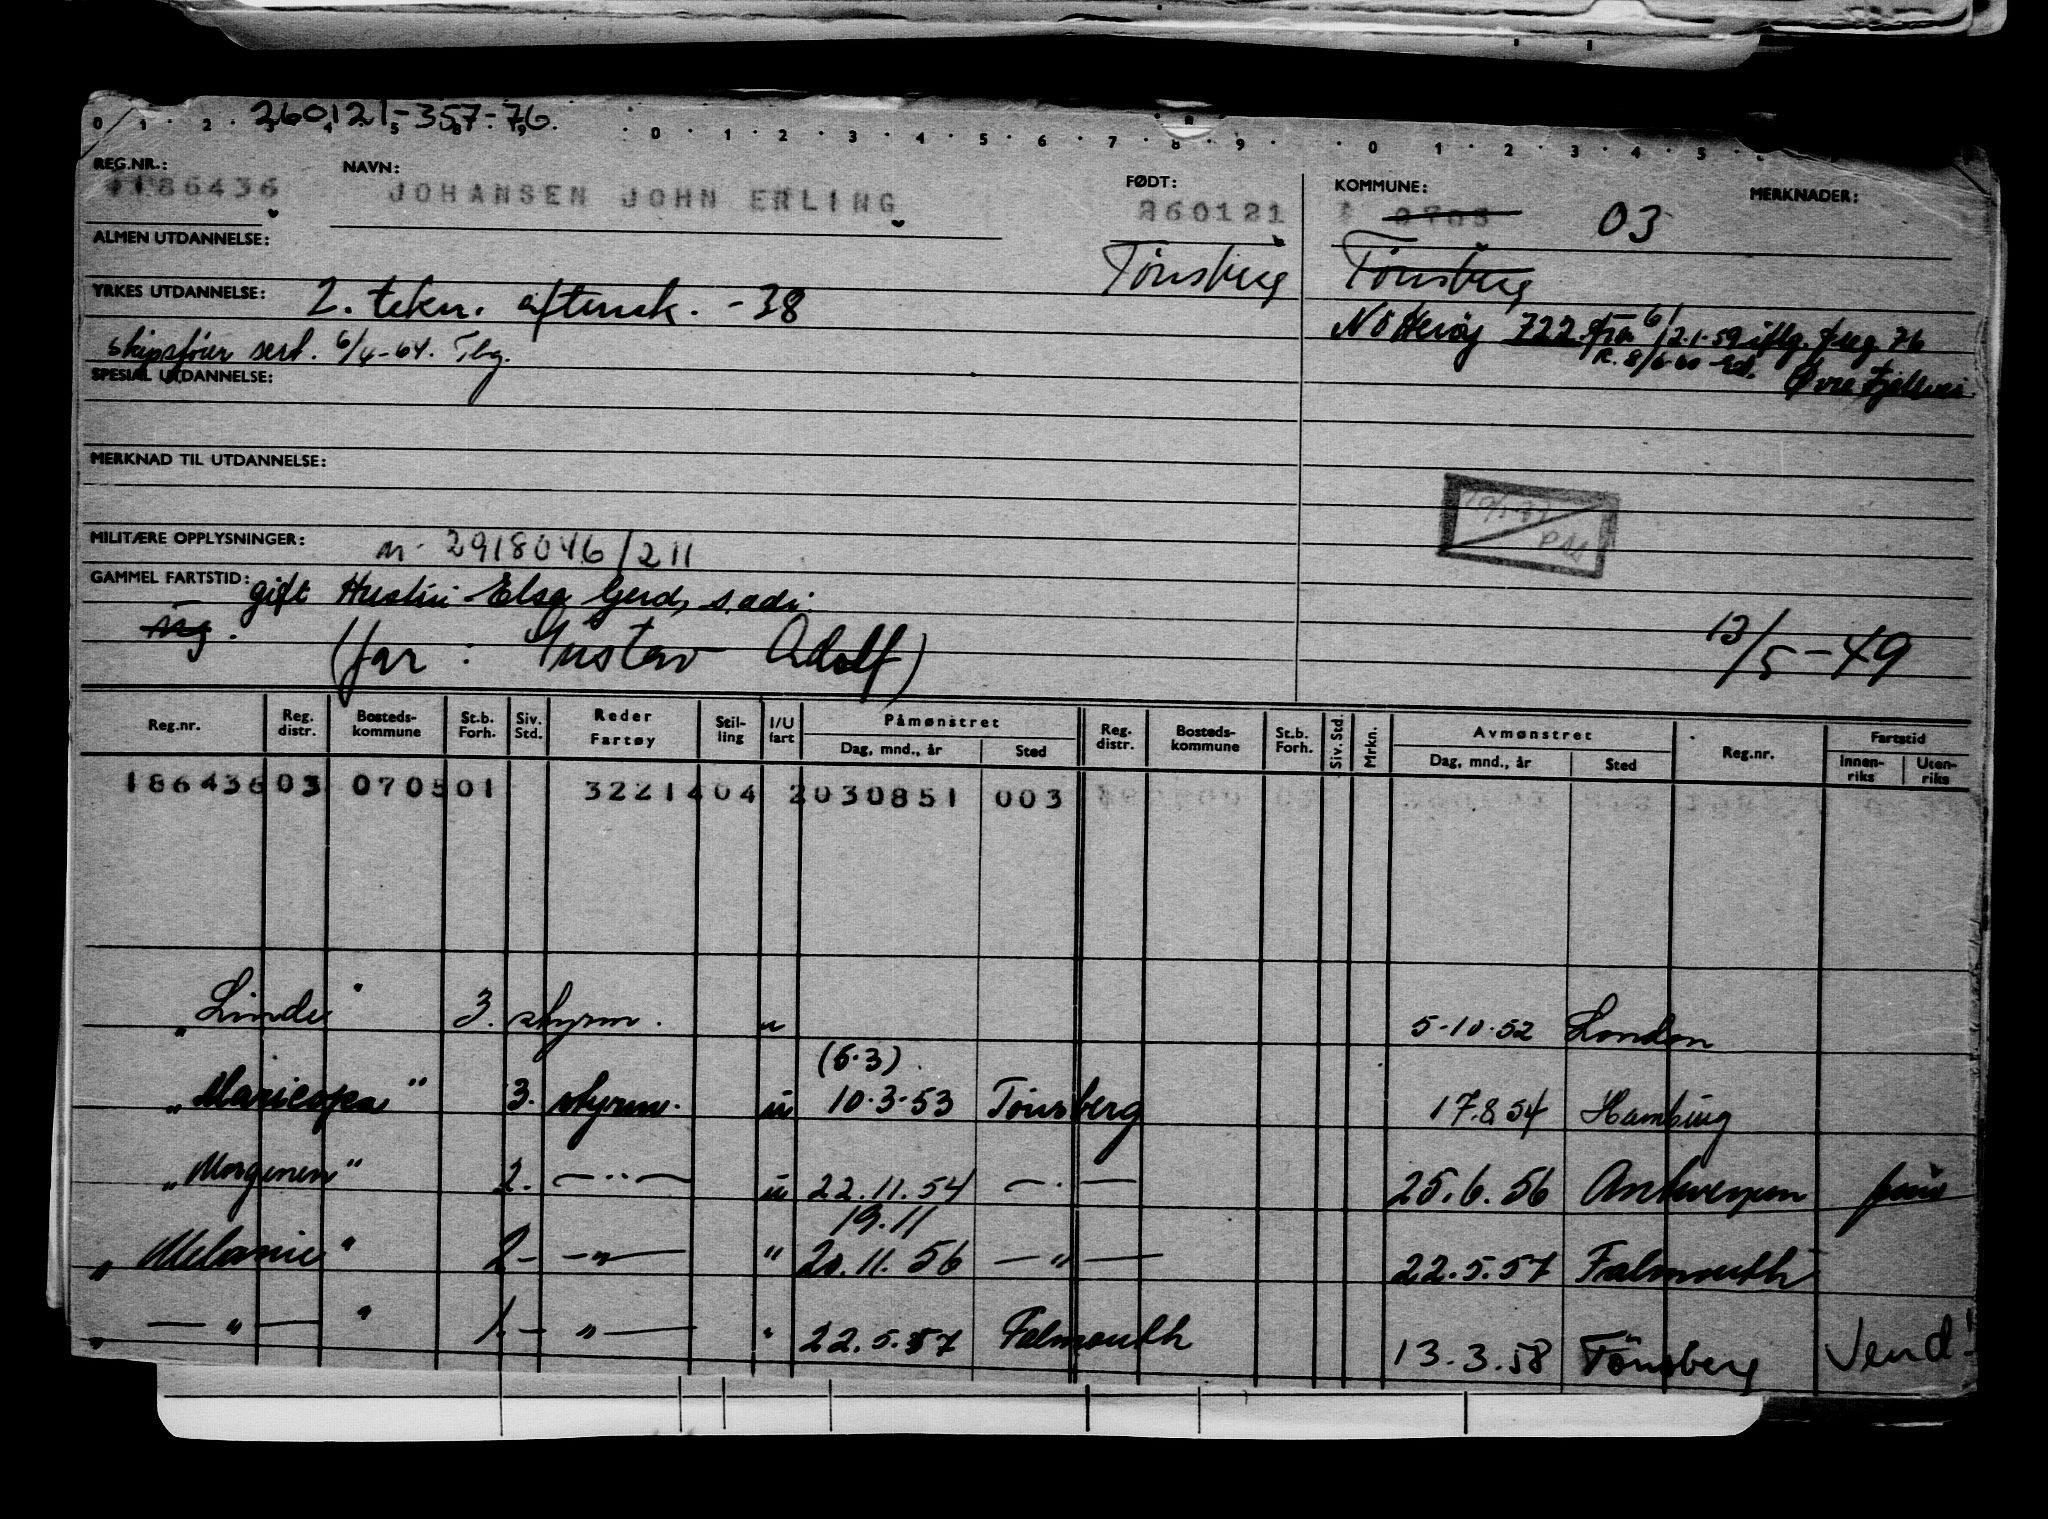 260121-357-76.
0 1 2 0 1 2 3 4 5 6 7 8 9 0 1 2 3 4 5
REG.NR.: NAVN: FØDT: KOMMUNE: MERKNADER:
186436 JOHANSEN JOHN ERLING 260121 0705 03
ALMEN UTDANNELSE: Tønsberg Tønsberg
YRKES UTDANNELSE: 2. tekn. aftensk. -38
Nøtterøy 722 fra 6/
skipsfører sert. 6/4-64. Tbg.
R. 8/6-60
SPESIAL UTDANNELSE: Øvre
MERKNAD TIL UTDANNELSE:
MILITÆRE OPPLYSNINGER: nr. 2918046/211
GAMMEL FARTSTID: gift Hustru Elsa Gerd, s. adr.
ug. (far: Gustav Adolf) 13/5-49
Reg.nr. Reg. distr. Bosteds-kommune St.b. Forh. Siv. Std. Reder Fartøy Stil-ling I/U fart Påmønstret Dag, mnd., år Sted Reg. distr. Bosteds-kommune St.b. Forh. Siv. Std. Mrkn. Avmønstret Dag, mnd., år Sted Reg.nr. Fartstid Innen-riks Uten-riks
186436 03 0705 01 3221404 2030851 003
"Linde" 3. styrm. u 5-10-52 London
(6.3)
"Maricopa" 3. styrm. u 10.3.53 Tønsberg 17.8.54 Hamburg
"Morgenen" 2. —"— u 22.11.54 —"— 25.6.56 Antwerpen
19.11
"Melanie" 2- —"— " 20.11.56 —"— 22.5.57 Falmouth
" —"— " 1.- —"— " 22.5.57 Falmouth 13.3.58 Tönsberg Vend!